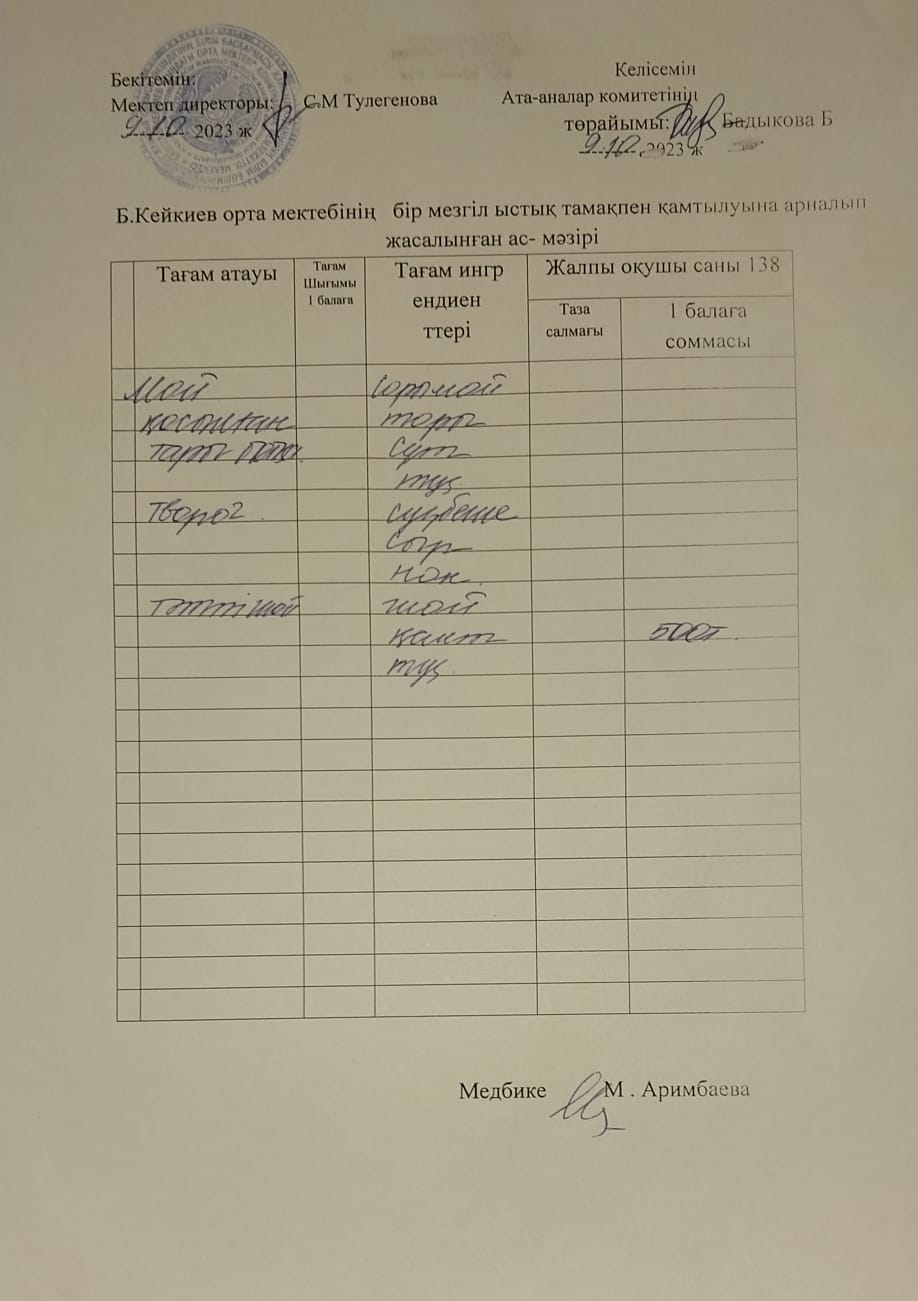 Бекітемін:
Мектеп директоры: С.М Тулегенова
9.10. 2023 ж
Келісемін
Ата-аналар комитетінің
төрайымы: Бадыкова Б
9.10. 2023 ж
Б.Кейкиев орта мектебінің бір мезгіл ыстық тамақпен қамтылуына арналып
жасалынған ас- мәзірі
Тағам атауы
Тағам
Шығымы
1 балаға
Тағам ингр
ендиен
ттері
Жалпы оқушы саны 138
Таза
салмағы
1 балаға
соммасы
Май сарымай
қосылған тары
тары сүт
тұз
Творог сүзбеше
сыр
нан
тәтті шай шай
қант 500т.
тұз
Медбике М . Аримбаева